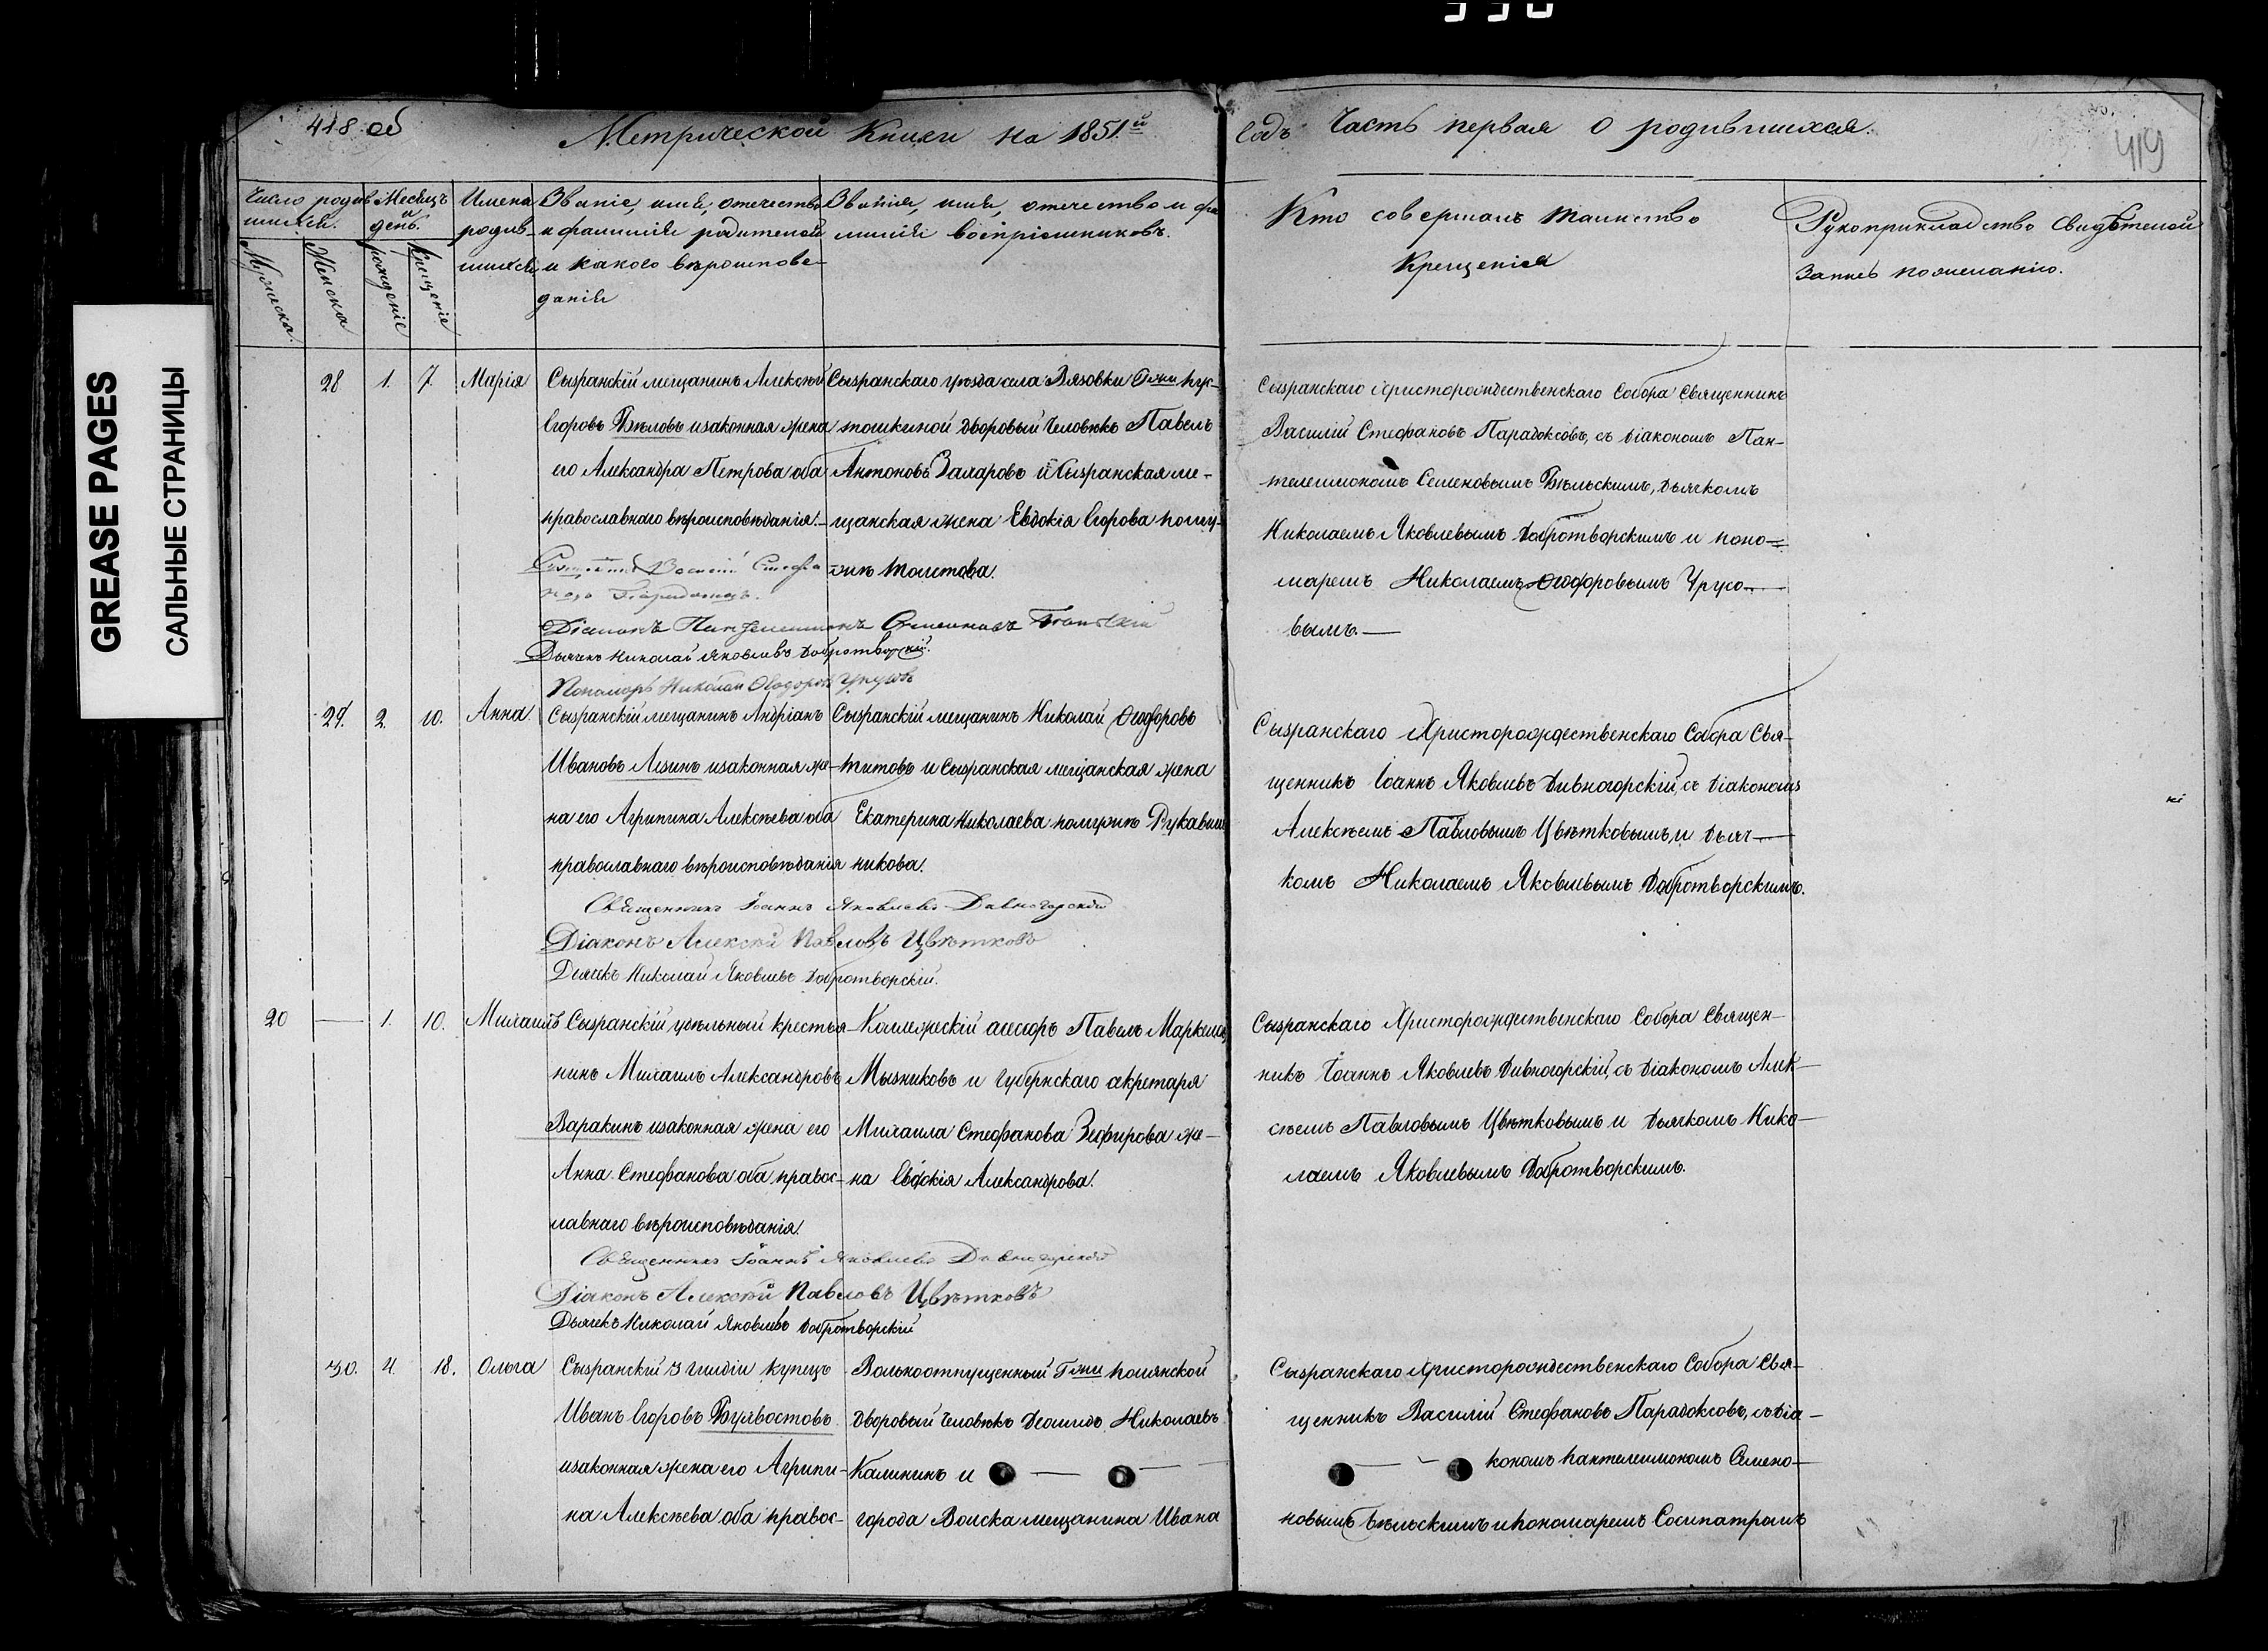 418 об
Метрической Книги на 1851.й
годъ Часть первая О родившихся.
419
GREASE PAGES
САЛЬНЫЕ СТРАНИЦЫ
Число родив-
шихся.
Мужеска.
Женска
Месяцъ
и
день.
рожденіе
крещеніе
Имена
родив-
шихся
Званіе, имя, отечество
и фамилія родителей
и какого вѣроиспове-
данія
Званія, имя, отечество и фа
милія воспріемниковъ.
Кто совершалъ таинство
Крещенія
Рукоприкладство Свидѣтелей
записъ по желанію.
28 1. 7. Марія
Сызранскій мещанинъ Алексѣй
Егоровъ Бѣловъ и законная жена
его Александра Петрова оба
православнаго вѣроисповѣданія.
Сызранскаго уѣзда села Вязовки Г-жи Пус-
тошкиной дворовый человѣкъ Павелъ
Антоновъ Захаровъ и Сызранская ме-
щанская жена Евдокія Егорова помщ-
икъ Толстова.
Сызранскаго Христорождественскаго Собора Священникъ
Василій Стефановъ Парадоксовъ, съ діакономъ Пан-
телеимономъ Семеновымъ Бѣльскимъ, дьячкомъ
Николаемъ Яковлевымъ Добротворскимъ и поно-
маремъ Николаемъ Ѳеодоровымъ Урусо-
вымъ.
Василій Стефа
новъ Парадоксовъ.
Діаконъ Пантелеимонъ Семеновъ Бѣльскій
Дьячекъ Николай Яковлевъ Добротворскій.
Пономарь Николай Ѳеодоровъ Урусовъ
29. 2. 10. Анна.
Сызранскій мещанинъ Андріанъ
Ивановъ Лезинъ и законная же-
на его Агрипина Алексѣева оба
православнаго вѣроисповѣданія
Сызранскій мещанинъ Николай Ѳеодоровъ
Титовъ и Сызранская мещанская жена
Екатерина Николаева Рукавиш
никова.
Сызранскаго Христорождественскаго Собра Свя-
щенникъ Іоаннъ Яковлевъ Дивногорскій, съ діакономъ
Алексѣемъ Павловымъ Цвѣтковымъ, и дьяч-
комъ Николаемъ Яковлевымъ Добротворскимъ.
Священникъ Іоаннъ Яковлевъ Дивногорскій
Діаконъ Алексѣй Павловъ Цвѣтковъ
Дьячекъ Николай Яковлевъ Добротворскій.
20 1. 10. Михаилъ
Сызранскій удѣльный крестья-
нинъ Михаилъ Александровъ
Варакинъ и законная жена его
Анна Стефанова оба правос-
лавнаго вѣроисповѣданія.
Коллежскій асесоръ Павелъ Маркелов
Мызниковъ и губернскаго секретаря
Михаила Стефанова Зефирова же-
на Евдокія Александрова.
Сызранскаго Христорождественскаго Собора Священ-
никъ Іоаннъ Яковлевъ Дивногорскій, съ діакономъ Алек-
сѣемъ Павловымъ Цвѣтковымъ и дьячкомъ Нико-
лаемъ Яковлевымъ Добротворскимъ.
Священникъ Іоаннъ Яковлевъ Дивногорскій
Діаконъ Алексѣй Павловъ Цвѣтковъ
Дьячекъ Николай Яковлевъ Добротворскій
30. 4. 18. Ольга
Сызранскій 3 гильдіи купецъ
Иванъ Егоровъ Бухвостовъ
и законная жена его Агрипи-
на Алексѣева оба правос-
Вольноотпущенный Г-жи Полянской
дворовый человѣкъ Деомидъ Николаевъ
Калининъ и
города Волска мещанина Ивана
Сызранскаго Христорождественскаго Собора Свя-
щенникъ Василій Стефановъ Парадоксовъ, съ діа-
кономъ Пантелеимономъ Семено-
новымъ Бѣльскимъ и пономаремъ Сосипатромъ